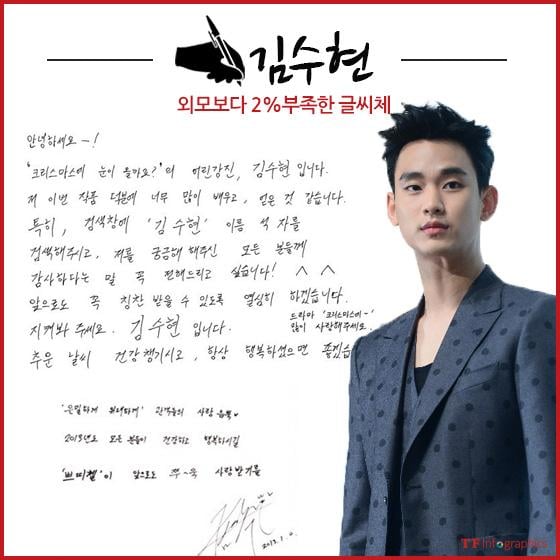 김수현
외모보다 2%부족한 글씨체
안녕하세요~!
'크리스마스에 눈이 올까요?'의 어린강진, 김수현 입니다.
저 이번 작품 덕분에 너무 많이 배우고, 얻은 것 같습니다.
특히, 검색창에 '김수현' 이름 석 자를
검색해주시고, 저를 궁금해 해주신 모든 분들께
감사하다는 말 꼭 전해드리고 싶습니다! ^ ^
앞으로도 꼭 칭찬 받을 수 있도록 열심히 하겠습니다.
지켜봐 주세요. 김수현 입니다. 드라마 '크리스마스에~'
많이 사랑해주세요.
추운 날씨 건강 챙기시고, 항상 행복하셨으면 좋겠습
'은밀하게 위대하게' 관객들의 사랑 듬뿍♥
2013년도 모든 분들이 건강하고 행복하시길
'쁘띠첼'이 앞으로도 쭈~욱 사랑받기를
2013. 1. 
TF infographics